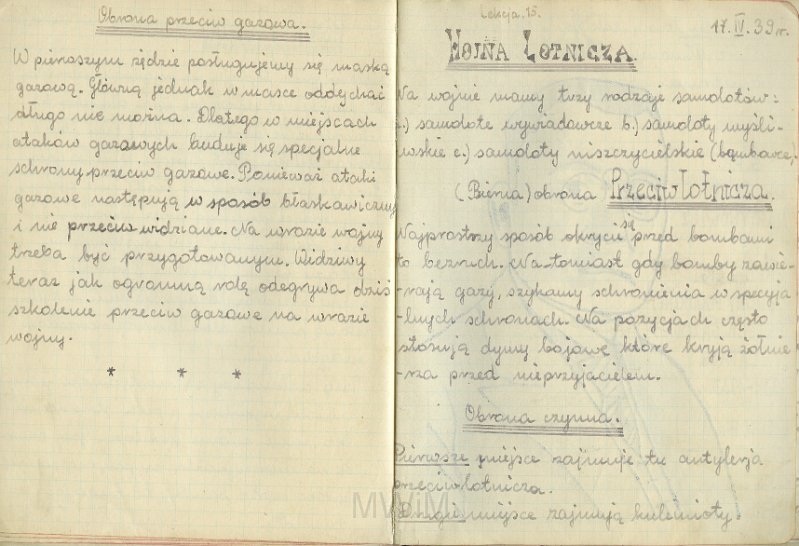 Obrona przeciw gazowa.
W pierwszym rzędzie posługujemy się maską
gazową. Główną jednak w masce oddychać
długo nie można. Dlatego w miejscach
ataków gazowych buduje się specjalne
schrony przeciw gazowe. Ponieważ ataki
gazowe następują w sposób błaskawiczny
i nie przeciw widziane. Na wrazie wojny
trzeba być przygotowanym. Widziwy
teraz jak ogromną rolę odegrywa dziś
szkolenie przeciw gazowe na wrazie
wojny.
* * *
Lekcja 13.
17.IV.39r.
WOJNA LOTNICZA.
Na wojnie mamy trzy rodzaje samolotów:
a.) samolote wywiadowcze b.) samoloty myśli-
wskie c.) samoloty niszczycielskie (bombowce).
(Bierna) obrona Przeciw lotnicza.
Najprostrzy sposób okrycia się przed bombami
to bezruch. Na tomiast gdy bomby zawie-
-rają gazy, szukamy schronienia w specyja
-lnych schronach. Na pozycjach często
stosują dymy bojowe które kryją żołnie
-rza przed nieprzyjacielem.
Obrona czynna.
Pierwsze miejsce zajmuje tu artylerja
przeciw lotnicza.
Drugie miejsce zajmują kulemioty.
MWiM